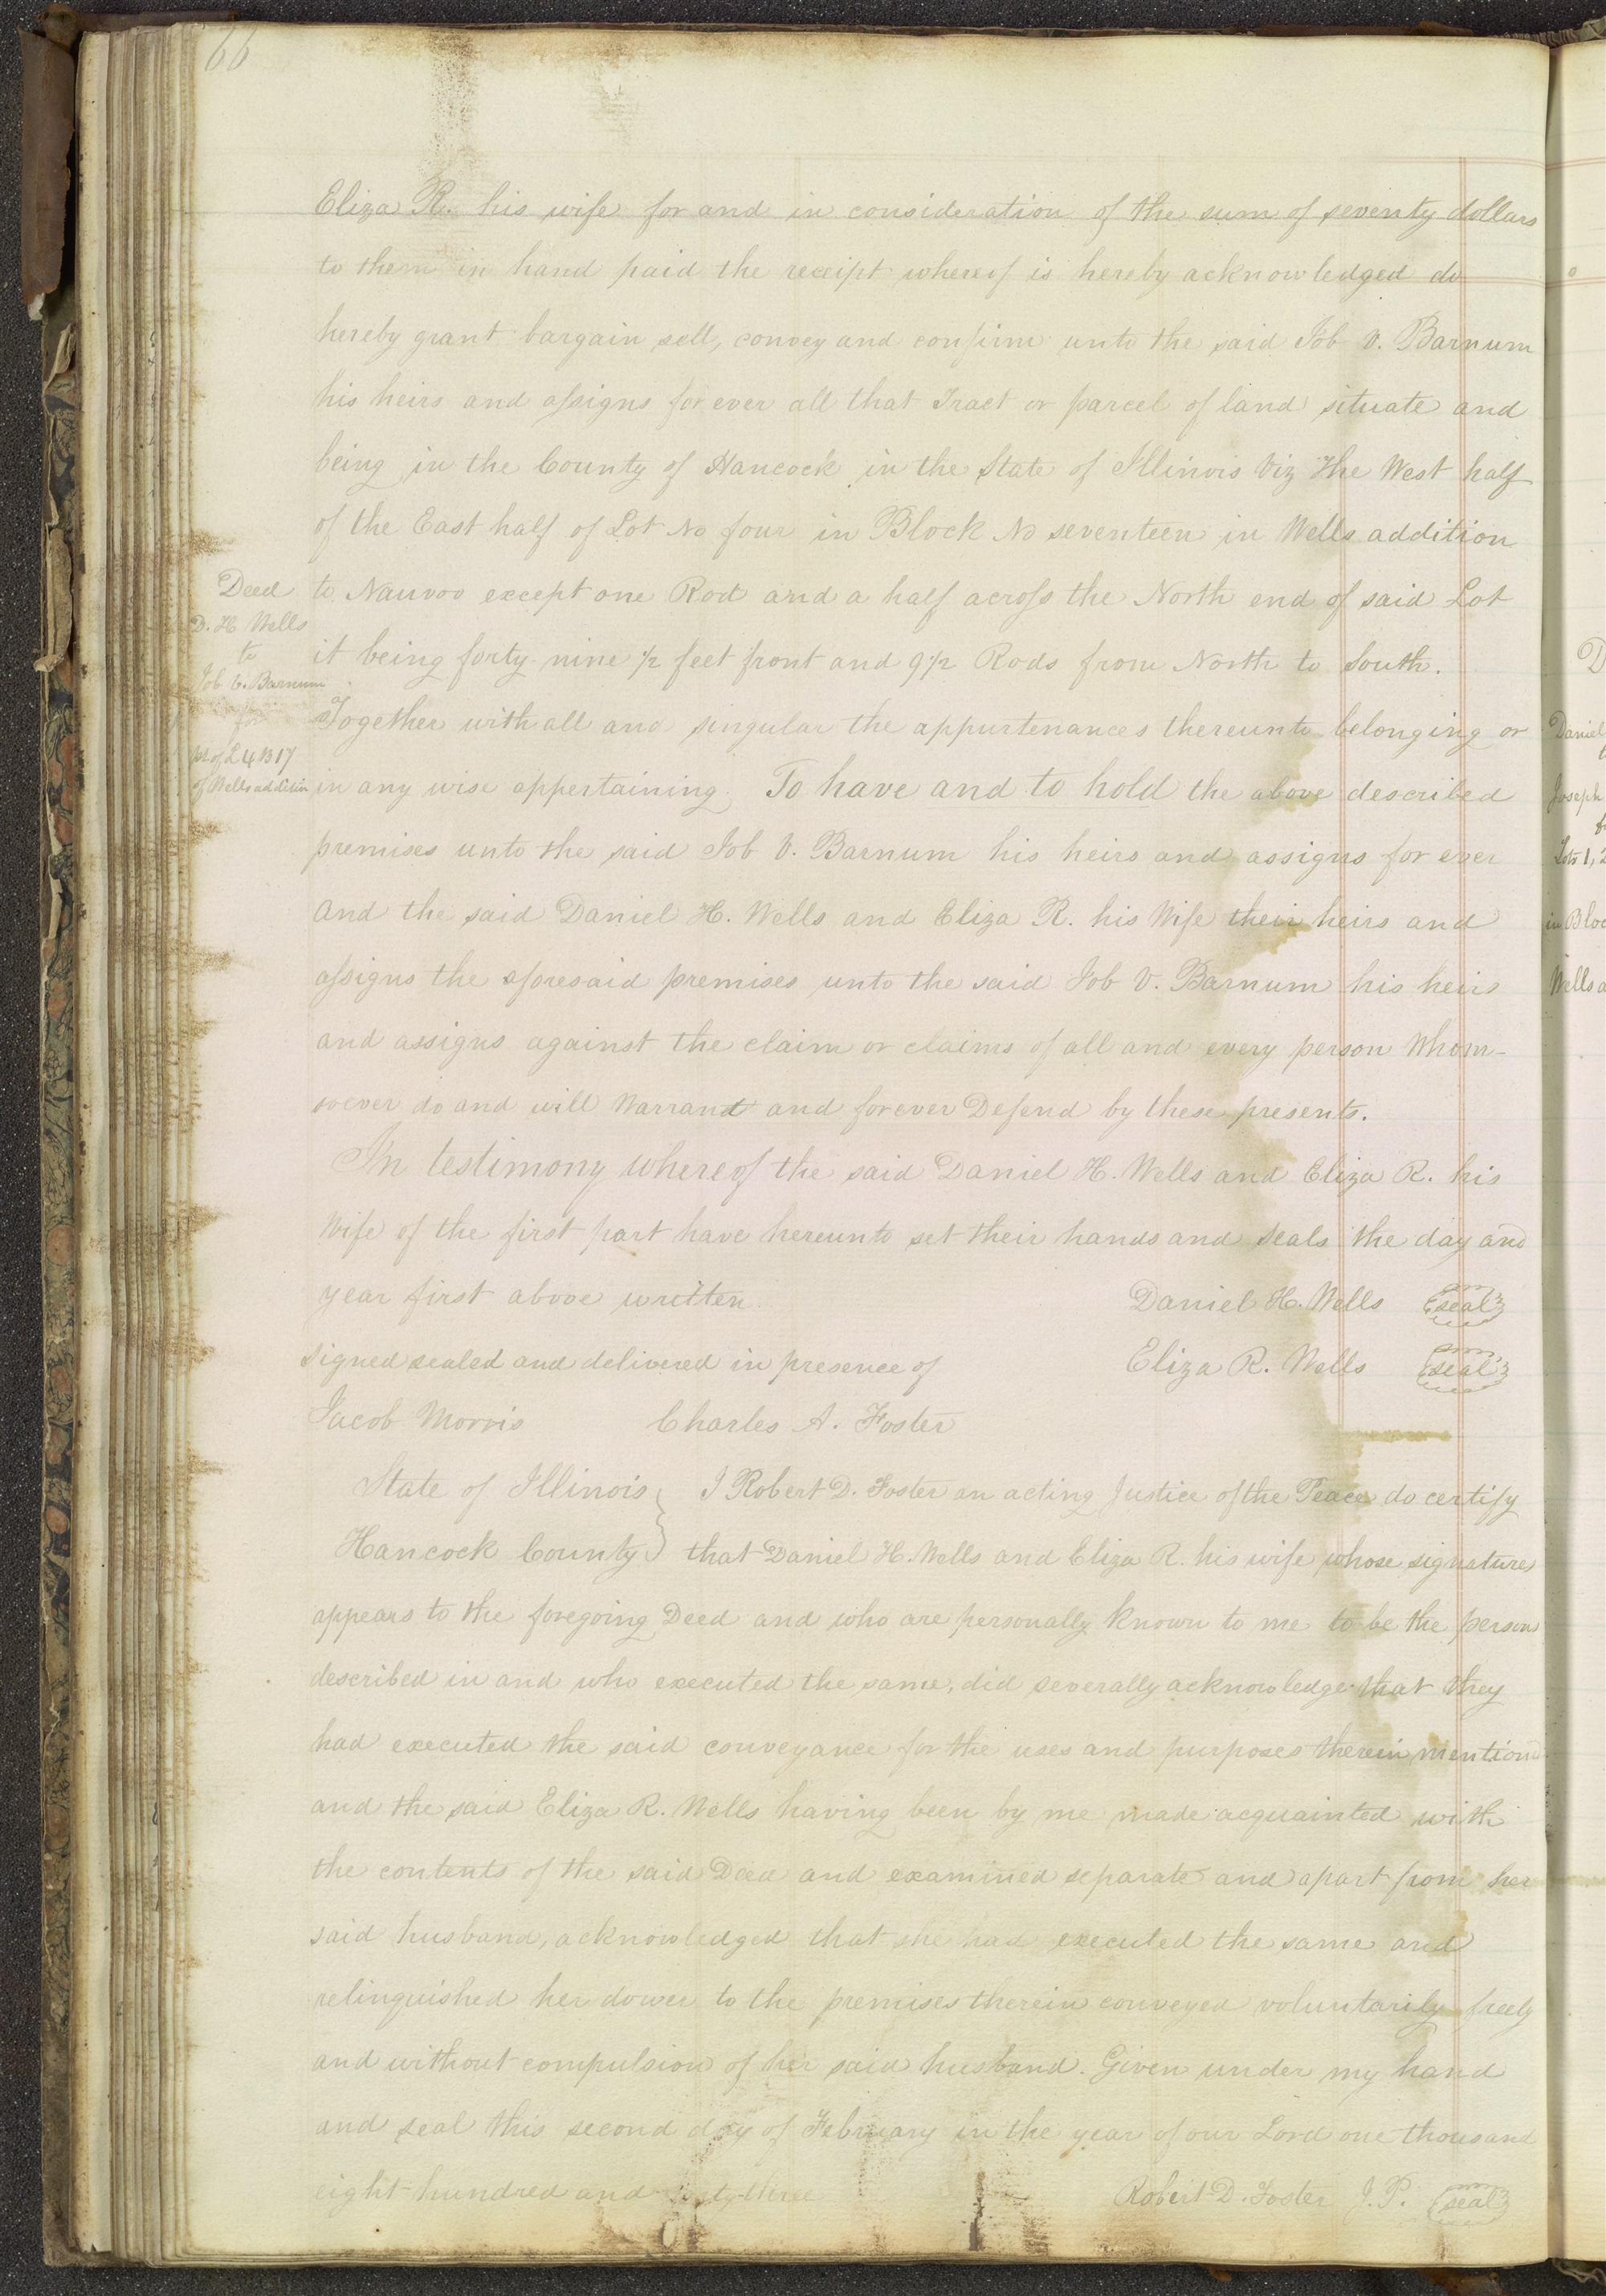 66
Eliza R. his wife for and in consideration of the sum of seventy dollars
to them in hand paid the receipt whereof is hereby acknowledged do
hereby grant bargain sell, convey and confirm unto the said Job V. Barnum
his heirs and assigns for ever all that Tract or parcel of land situate and
being in the County of Hancock in the State of Illinois Viz The West half
of the East half of Lot No four in Block No seventeen in Wells addition
to Nauvoo except one Rod and a half across the North end of said Lot
it being forty nine 1/2 feet front and 9 1/2 Rods from North to South.
Together with all and singular the appurtenances thereunto belonging or
in any wise appertaining. To have and to hold the above described
premises unto the said Job V. Barnum his heirs and assigns for ever
And the said Daniel H. Wells and Eliza R. his Wife their heirs and
assigns the aforesaid premises unto the said Job V. Barnum his heirs
and assigns against the claim or claims of all and every person Whom-
soever do and will Warrant and forever Defend by these presents.
In testimony whereof the said Daniel H. Wells and Eliza R. his
Wife of the first part have hereunto set their hands and seals the day and
year first above written Daniel H. Wells seal
signed sealed and delivered in presence of Eliza R. Wells seal
Jacob Morris Charles A. Foster
State of Illinois } I Robert D. Foster an acting Justice of the Peace do certify
Hancock County } that Daniel H. Wells and Eliza R. his wife whose signatures
appears to the foregoing Deed and who are personally known to me to be the persons
described in and who executed the same, did severally acknowledge that they
had executed the said conveyance for the uses and purposes therein mentioned
and the said Eliza R. Wells having been by me made acquainted with
the contents of the said Deed and examined separate and apart from her
said husband, acknowledged that she had executed the same and
relinquished her dower to the premises therein conveyed voluntarily freely
and without compulsion of her said husband. Given under my hand
and seal this second day of February in the year of our Lord one thousand
eight hundred and forty-three Robert D. Foster J.P. seal
Deed
D. H. Wells
to
Job V. Barnum
for
pt of L 4 B 17
of Wells addition
D
Daniel
Joseph
Lots 1, 2
in Bloc
Wells a